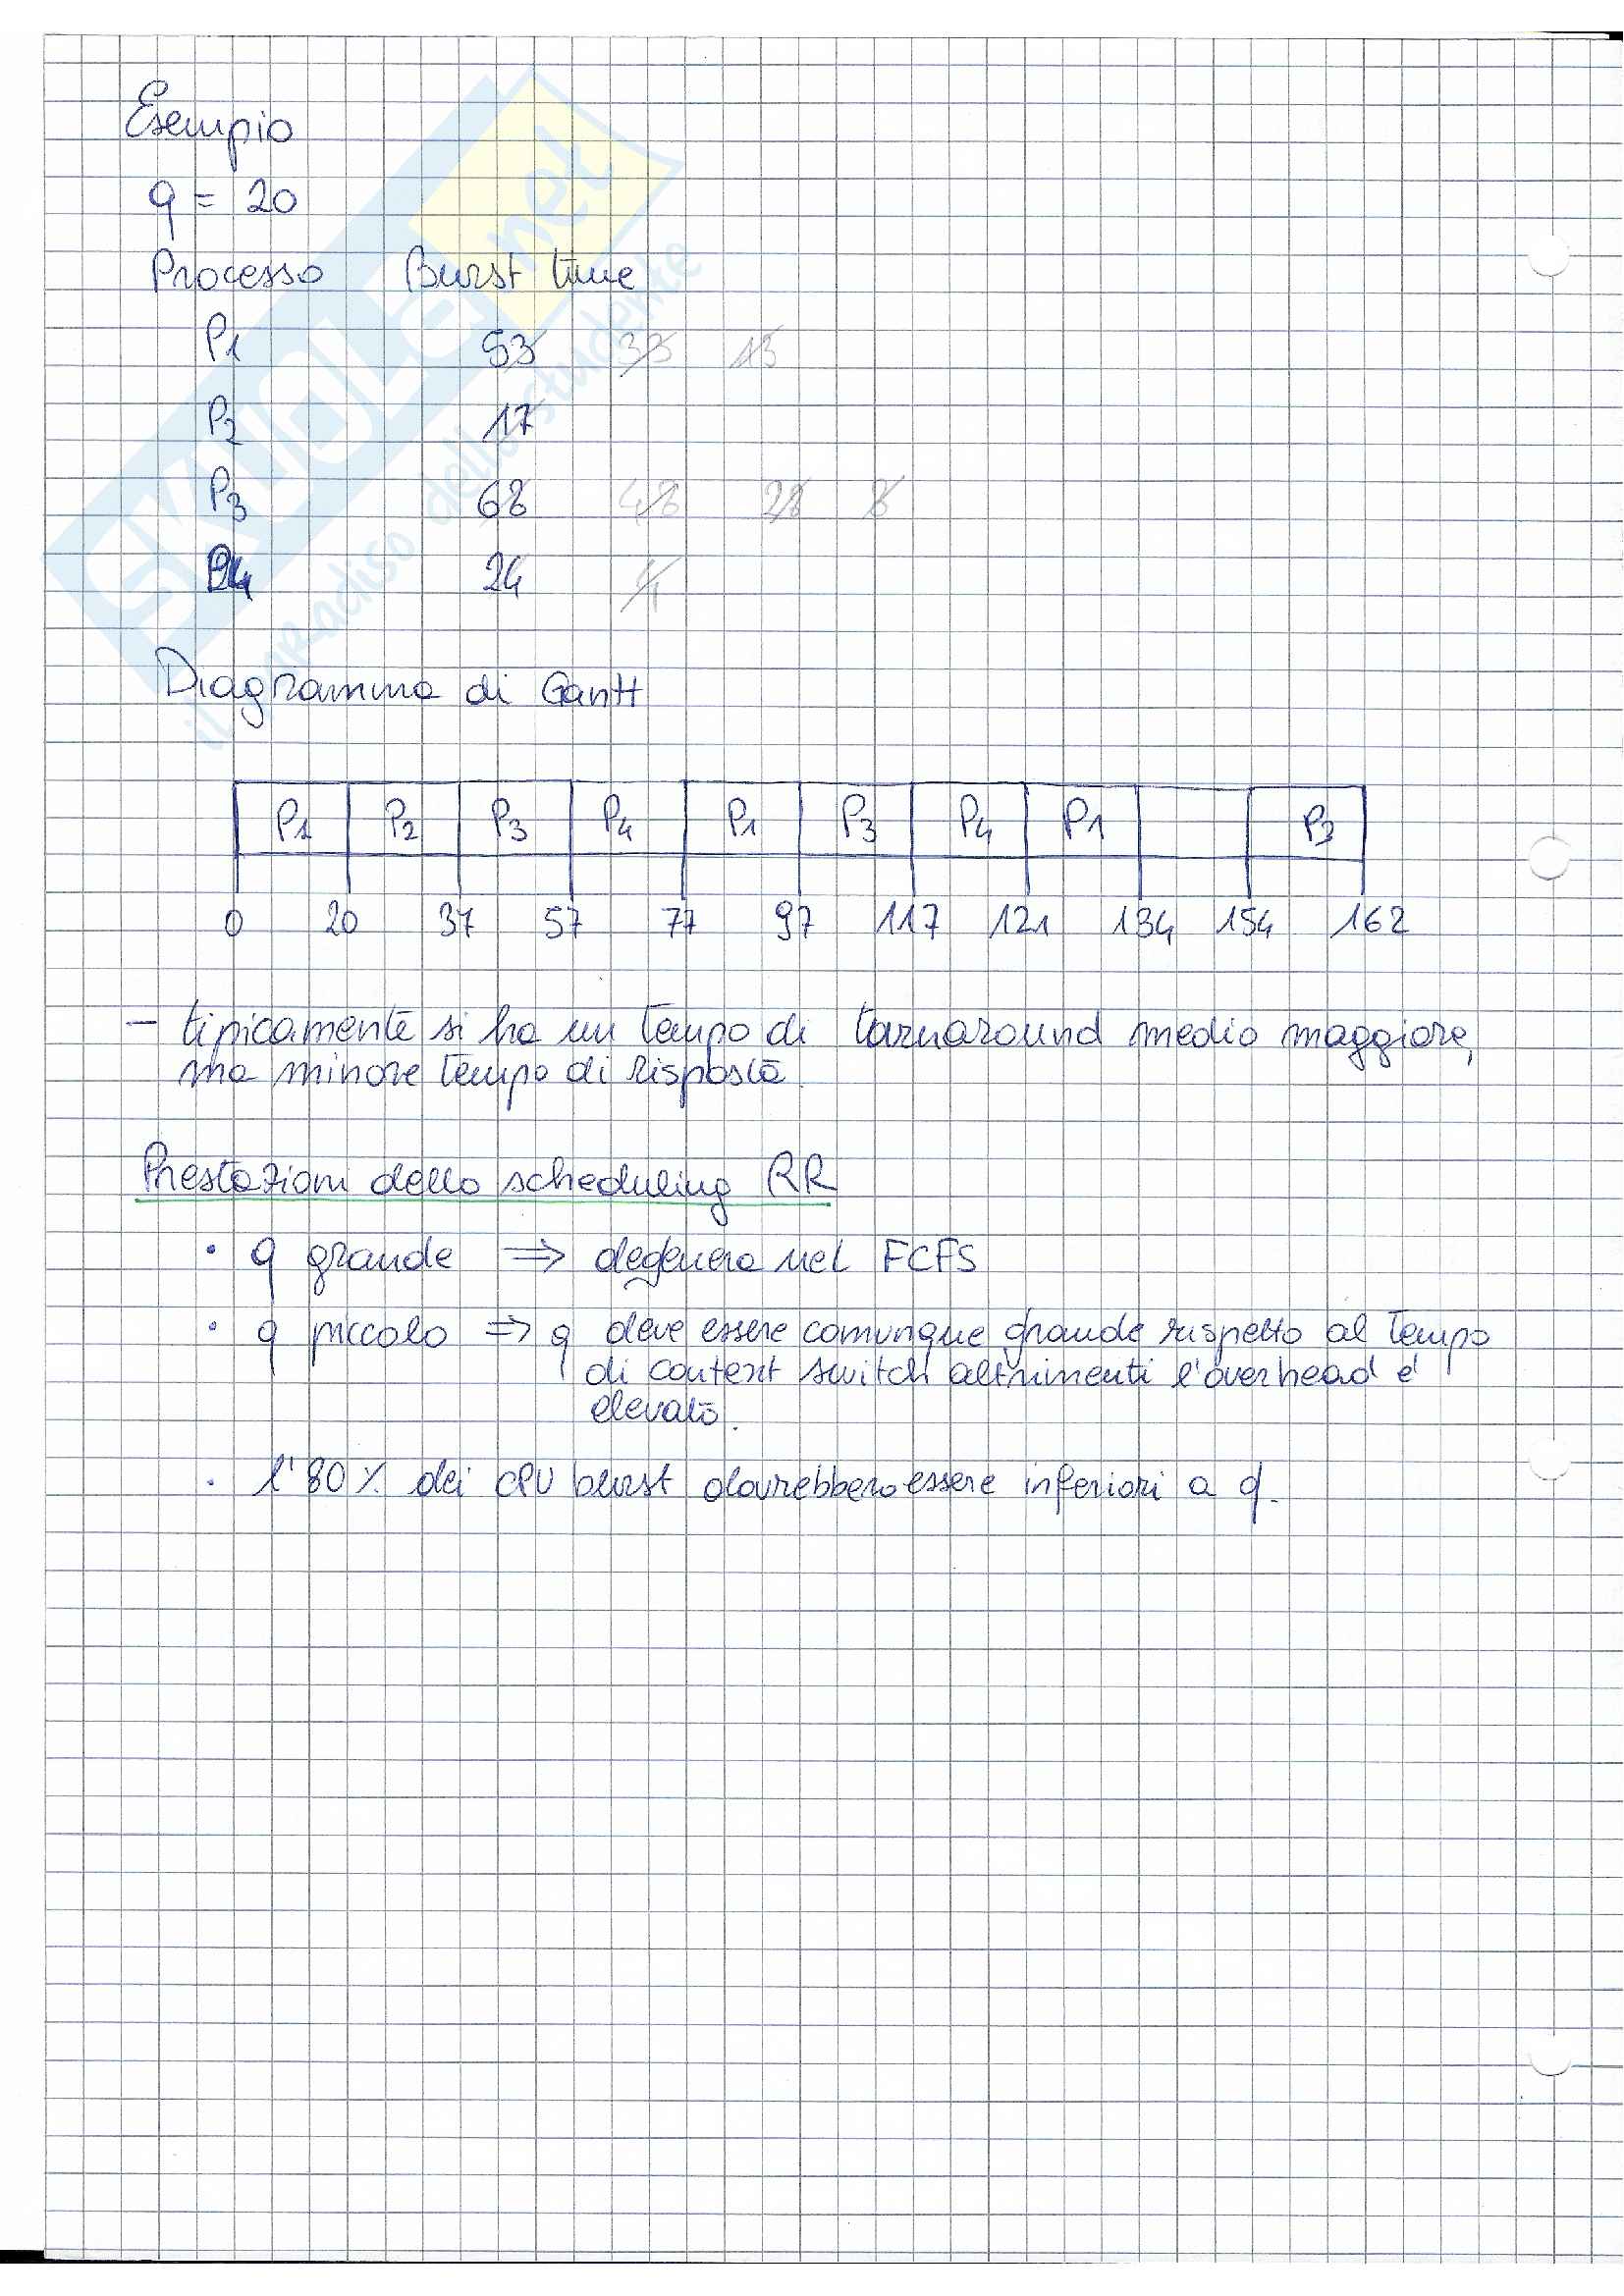 Esempio
q = 20
Processo Burst time
P1 53 33 13
P2 17
P3 68 48 28 8
P4 24 4
Diagramma di Gantt
P1 P2 P3 P4 P1 P3 P4 P1 P3
0 20 37 57 77 97 117 121 134 154 162
- tipicamente si ha un tempo di turnaround medio maggiore,
ma minore tempo di risposta.
Prestazioni dello scheduling RR
• q grande => degenera nel FCFS
• q piccolo => q deve essere comunque grande rispetto al tempo
di context switch altrimenti l'overhead è
elevato.
• l'80% dei CPU burst dovrebbero essere inferiori a q.
SKUOLA.net
il paradiso dello studente